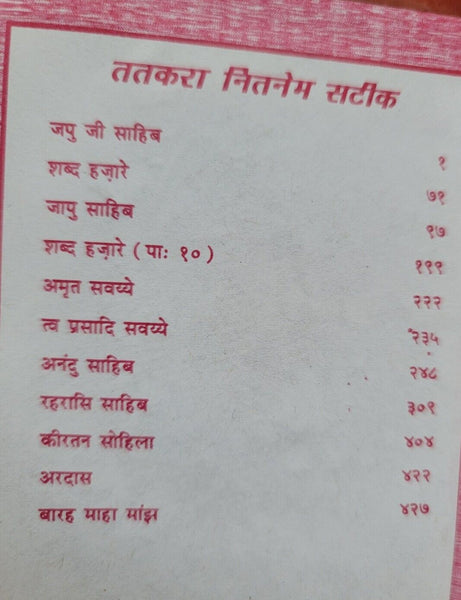 ततकरा नितनेम सटीक
जपु जी साहिब १
शब्द हज़ारे ७१
जापु साहिब ९७
शब्द हज़ारे ( पाः १० ) १९९
अमृत सवय्ये २२२
त्व प्रसादि सवय्ये २३५
अनंदु साहिब २४८
रहरासि साहिब ३०९
कीरतन सोहिला ४०४
अरदास ४२२
बारह माहा मांझ ४२७